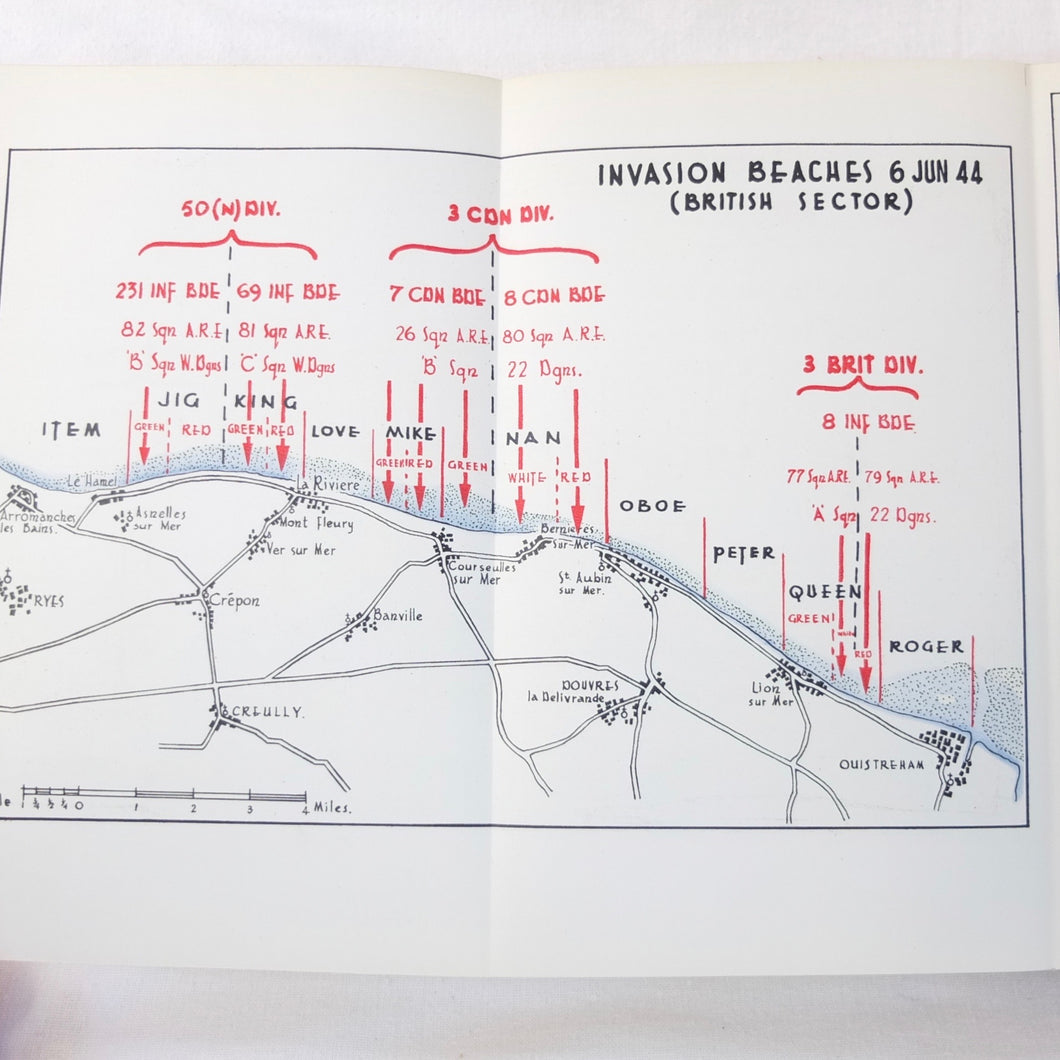 INVASION BEACHES 6 JUN 44
(BRITISH SECTOR)
50 (N) DIV.
231 INF BDE
69 INF BDE
82 Sqn A.R.E.
81 Sqn A.R.E.
'B' Sqn W.Dgns
'C' Sqn W.Dgns
3 CDN DIV.
7 CDN BDE
8 CDN BDE
26 Sqn A.R.E.
80 Sqn A.R.E.
'B' Sqn
22 Dgns.
3 BRIT DIV.
8 INF BDE
77 Sqn A.R.E.
79 Sqn A.R.E.
'A' Sqn
22 Dgns.
ITEM
JIG
GREEN
RED
KING
GREEN
RED
LOVE
MIKE
GREEN
RED
NAN
GREEN
WHITE
RED
OBOE
PETER
QUEEN
GREEN
WHITE
RED
ROGER
Arromanches
les Bains.
Le Hamel
Asnelles
sur Mer
La Riviere
Mont Fleury
Ver sur Mer
RYES
Crépon
CREULLY.
Banville
Courseulles
sur Mer
Bernières
Sur-Mer
St. Aubin
sur Mer.
DOUVRES
la Delivrande
Lion
sur Mer
OUISTREHAM
1 ¾ ½ ¼ 0 1 2 3 4 Miles.